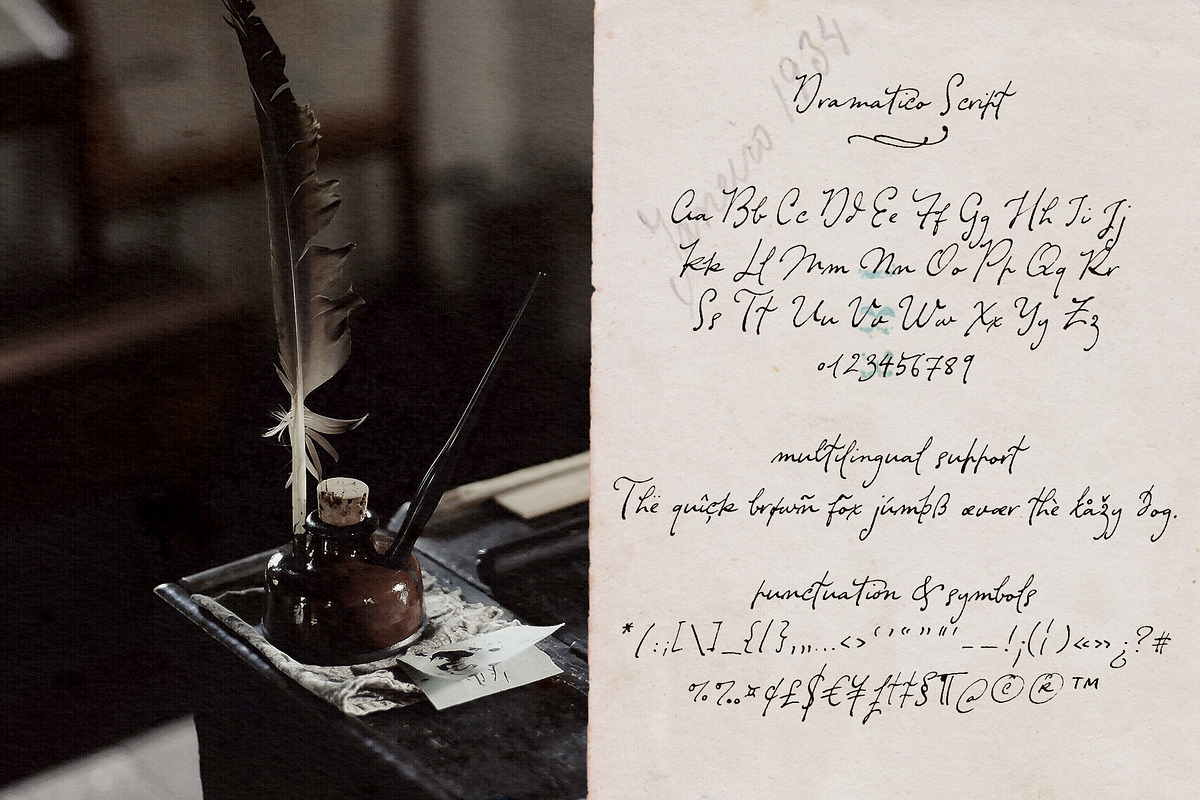 Dramatico Script
Janeiro 1934
Aa Bb Cc Dd Ee Ff Gg Hh Ii Jj
Kk Ll Mm Nn Oo Pp Qq Rr
Ss Tt Uu Vv Ww Xx Yy Zz
0123456789
multilingual support
Thë quîçk brøwñ fóx júmþß ævœr thè łåžy Ðog.
punctuation & symbols
* / : ; [ \ ] _ { | } , „ … < > ‘ ’ “ ” " ' – — ! ¡ ( ¦ ) « » ¿ ? #
% ‰ ¤ ¢ £ $ € ¥ ƒ † ‡ § ¶ @ © ® ™